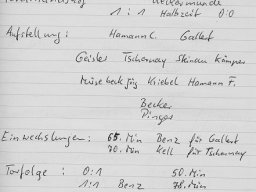 1 : 1 Halbzeit 0:0
Aufstellung : Hamann C. Gallert
Geisler Tscharnay Skincu Kämper
Müsebeck Jörg Kriebel Hamann F.
Becker
Dinges
Einwechslungen : 65. Min Benz für Gallert
70. Min Kell für Tscharnay
Torfolge : 0:1 50. Min
1:1 Benz 78. Min